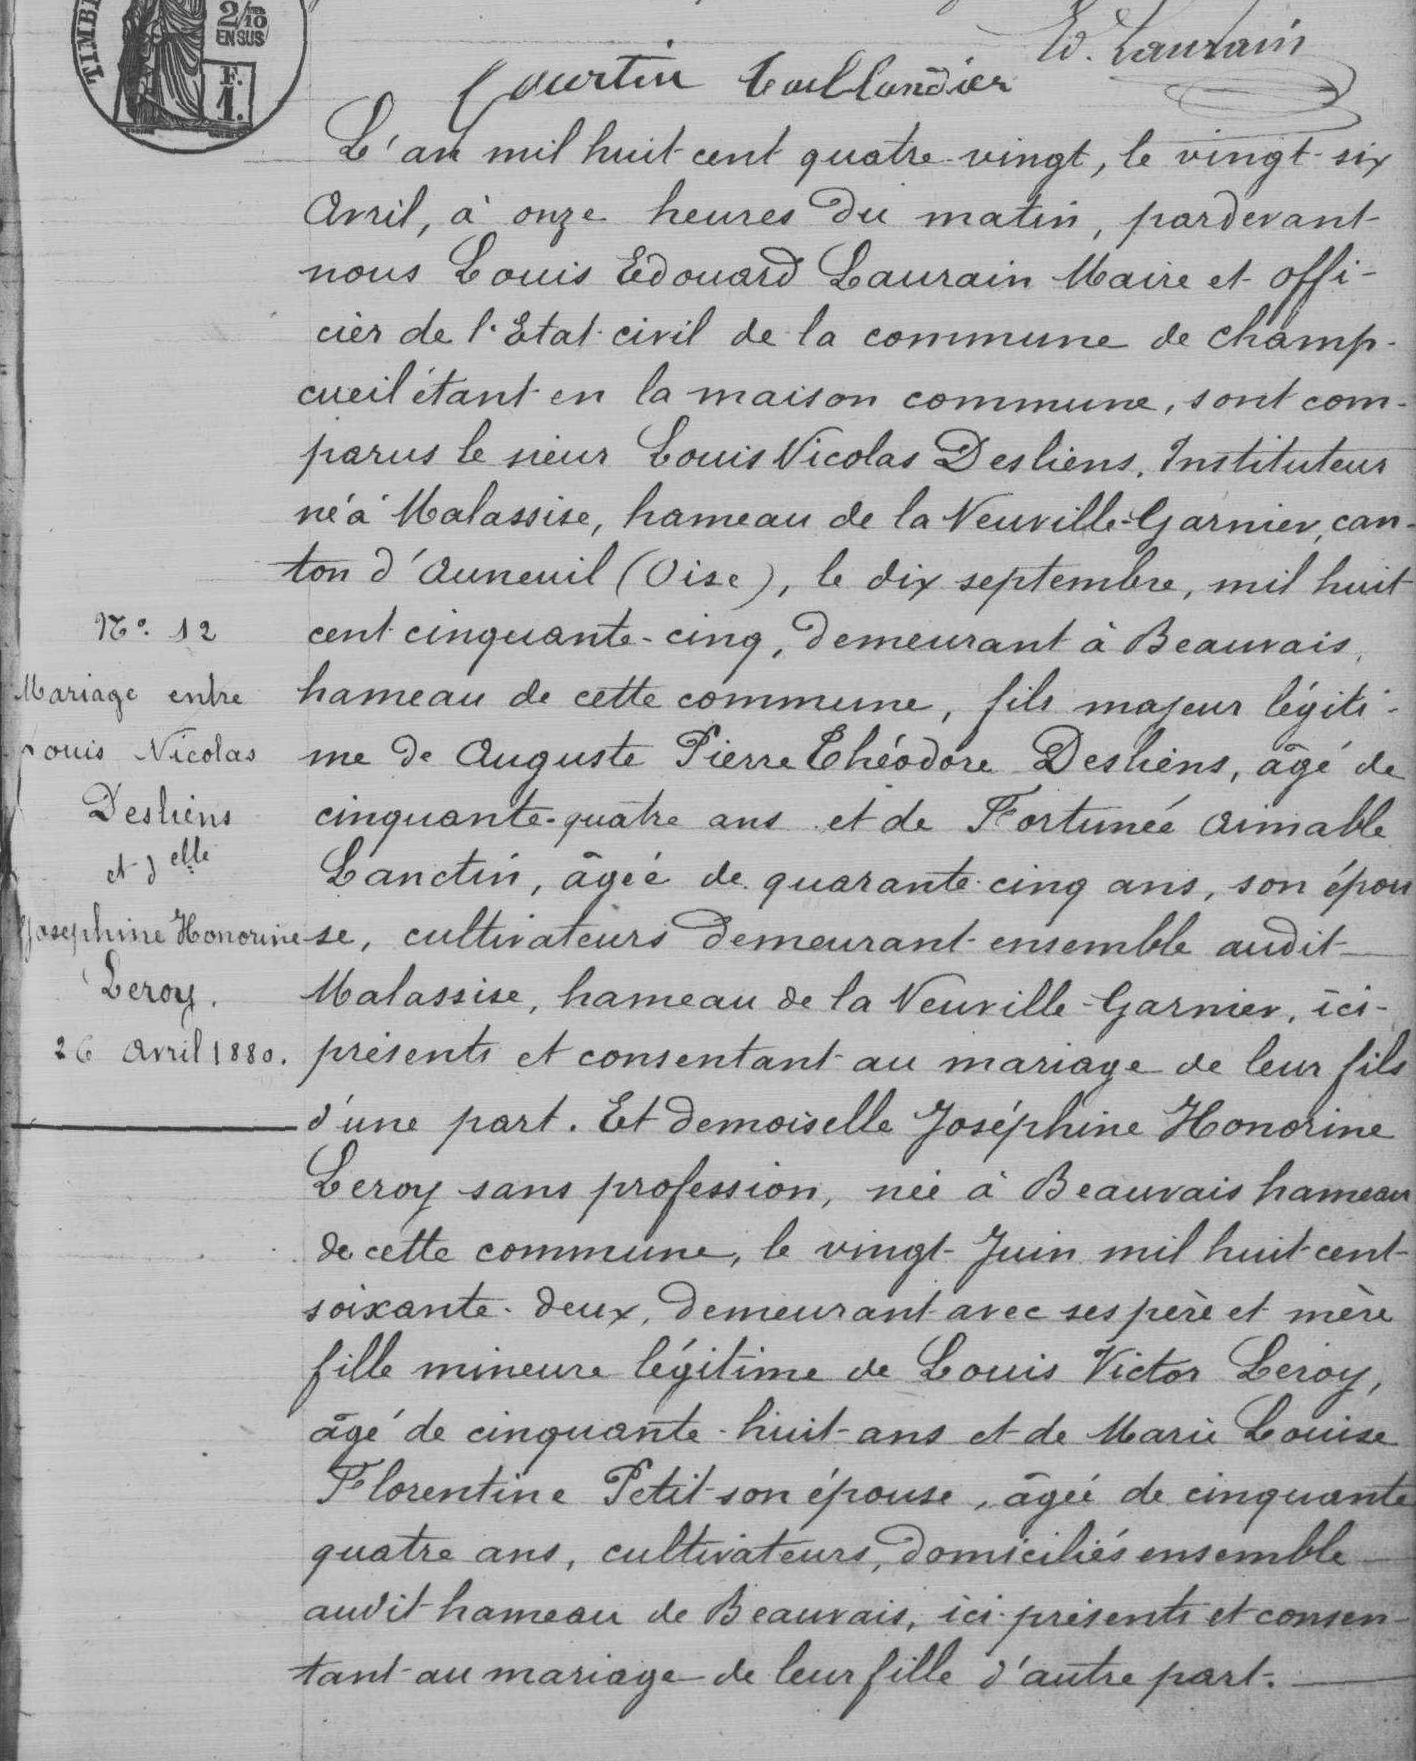 TIMB
2/10
EN SUS
F.
1.
Ed. Laurain
Courtin Taillandier
L'an mil huit cent quatre-vingt, le vingt-six
Avril, à onze heures du matin, pardevant
nous Louis Edouard Laurain Maire et offi-
cier de l'Etat civil de la commune de Champ-
cueil étant en la maison commune, sont com-
parus le sieur Louis Nicolas Desliens, Instituteur
né à Malassise, hameau de la Neuville-Garnier, can-
ton d'Auneuil (Oise), le dix septembre, mil huit
cent cinquante-cinq, demeurant à Beauvais,
hameau de cette commune, fils majeur légiti-
me de Auguste Pierre Théodore Desliens, âgé de
cinquante-quatre ans et de Fortunée Aimable
Lanctin, âgée de quarante-cinq ans, son épou
se, cultivateurs demeurant ensemble audit
Malassise, hameau de la Neuville-Garnier, ici-
présents et consentant au mariage de leur fils
d'une part. Et demoiselle Joséphine Honorine
Leroy sans profession, née à Beauvais hameau
de cette commune, le vingt-Juin mil huit-cent-
soixante-deux, demeurant avec ses père et mère
fille mineure légitime de Louis Victor Leroy,
âgé de cinquante-huit-ans et de Marie Louise
Florentine Petit son épouse, âgée de cinquante
quatre ans, cultivateurs, domiciliés ensemble
audit hameau de Beauvais, ici-présents et consen-
tant au mariage de leur fille d'autre part.
N°. 12
Mariage entre
Louis Nicolas
Desliens
et delle
Joséphine Honorine
Leroy.
26 Avril 1880.